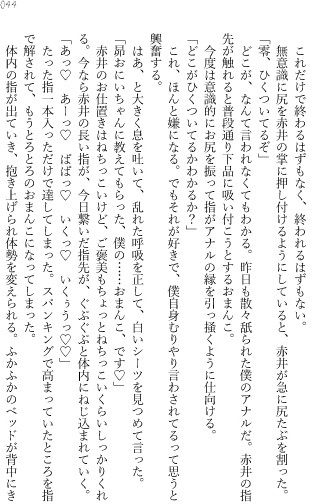 044
これだけで終わるはずもなく、終われるはずもない。
無意識に尻を赤井の掌に押し付けるようにしていると、赤井が急に尻たぶを割った。
「零、ひくついてるぞ」
どこが、なんて言われなくてもわかる。昨日も散々舐られた僕のアナルだ。赤井の指
先が触れると普段通り下品に吸い付こうとするおまんこ。
今度は意識的にお尻を振って指がアナルの縁を引っ掻くように仕向ける。
「どこがひくついてるかわかるか?」
これ、ほんと嫌になる。でもそれが好きで、僕自身むりやり言わされてるって思うと
興奮する。
はあ、と大きく息を吐いて、乱れた呼吸を正して、白いシーツを見つめて言った。
「昴おにいちゃんに教えてもらった、僕の……おまんこ、です♡」
赤井のお仕置きはねちっこいけど、ご褒美もちょっとねちっこいくらいしっかりくれ
る。今なら赤井の長い指が、今日繋いだ指先が、ぐぷぐぷと体内にねじ込まれていく。
「あっ♡ あーっ♡ ぱぱっ♡ いくっ♡ いくぅうっ♡♡」
たった指一本入っただけで達してしまった。スパンキングで高まっていたところを指
で解されて、もうとろとろのおまんこになってしまった。
体内の指が出ていき、抱き上げられ体勢を変えられる。ふかふかのベッドが背中にき